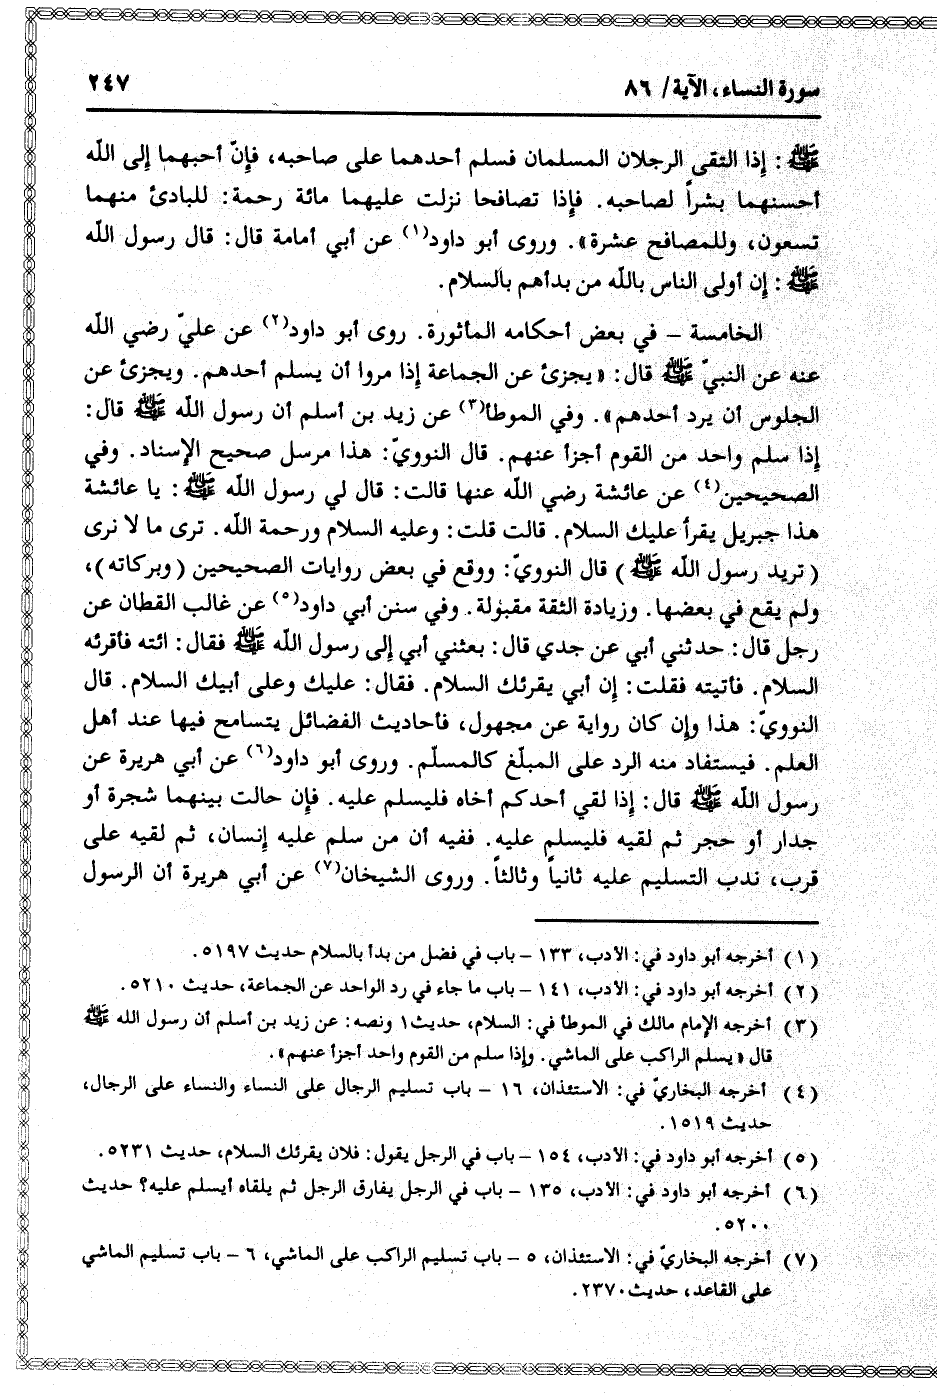 سورة النساء، الآية/ ٨٦
٢٤٧
ﷺ: إذا التقى الرجلان المسلمان فسلم أحدهما على صاحبه، فإنّ أحبهما إلى الله
أحسنهما بشراً لصاحبه. فإذا تصافحا نزلت عليهما مائة رحمة: للبادئ منهما
تسعون، وللمصافح عشرة». وروى أبو داود(١) عن أبي أمامة قال: قال رسول الله
ﷺ: إن أولى الناس بالله من بدأهم بالسلام.
الخامسة – في بعض أحكامه المأثورة. روى أبو داود(٢) عن عليّ رضي الله
عنه عن النبيّ ﷺ قال: «يجزئ عن الجماعة إذا مروا أن يسلم أحدهم. ويجزئ عن
الجلوس أن يرد أحدهم». وفي الموطأ(٣) عن زيد بن أسلم أن رسول الله ﷺ قال:
إذا سلم واحد من القوم أجزأ عنهم. قال النوويّ: هذا مرسل صحيح الإسناد. وفي
الصحيحين(٤) عن عائشة رضي الله عنها قالت: قال لي رسول الله ﷺ: يا عائشة
هذا جبريل يقرأ عليك السلام. قالت قلت: وعليه السلام ورحمة الله. ترى ما لا نرى
(تريد رسول الله ﷺ) قال النوويّ: ووقع في بعض روايات الصحيحين (وبركاته)،
ولم يقع في بعضها. وزيادة الثقة مقبولة. وفي سنن أبي داود(٥) عن غالب القطان عن
رجل قال: حدثني أبي عن جدي قال: بعثني أبي إلى رسول الله ﷺ فقال: ائته فأقرئه
السلام. فأتيته فقلت: إن أبي يقرئك السلام. فقال: عليك وعلى أبيك السلام. قال
النوويّ: هذا وإن كان رواية عن مجهول، فأحاديث الفضائل يتسامح فيها عند أهل
العلم. فيستفاد منه الرد على المبلّغ كالمسلّم. وروى أبو داود(٦) عن أبي هريرة عن
رسول الله ﷺ قال: إذا لقي أحدكم أخاه فليسلم عليه. فإن حالت بينهما شجرة أو
جدار أو حجر ثم لقيه فليسلم عليه. ففيه أن من سلم عليه إنسان، ثم لقيه على
قرب، ندب التسليم عليه ثانياً وثالثاً. وروى الشيخان(٧) عن أبي هريرة أن الرسول
(١) أخرجه أبو داود في: الأدب، ١٣٣ – باب في فضل من بدأ بالسلام حديث ٥١٩٧.
(٢) أخرجه أبو داود في: الأدب، ١٤١ – باب ما جاء في رد الواحد عن الجماعة، حديث ٥٢١٠.
(٣) أخرجه الإمام مالك في الموطأ في: السلام، حديث ١ ونصه: عن زيد بن أسلم أن رسول الله ﷺ
قال «يسلم الراكب على الماشي. وإذا سلم من القوم واحد أجزأ عنهم».
(٤) أخرجه البخاريّ في: الاستئذان، ١٦ – باب تسليم الرجال على النساء والنساء على الرجال،
حديث ١٥١٩.
(٥) أخرجه أبو داود في: الأدب، ١٥٤ – باب في الرجل يقول: فلان يقرئك السلام، حديث ٥٢٣١.
(٦) أخرجه أبو داود في: الأدب، ١٣٥ – باب في الرجل يفارق الرجل ثم يلقاه أيسلم عليه؟ حديث
٥٢٠٠.
(٧) أخرجه البخاريّ في: الاستئذان، ٥ – باب تسليم الراكب على الماشي، ٦ – باب تسليم الماشي
على القاعد، حديث ٢٣٧٠.